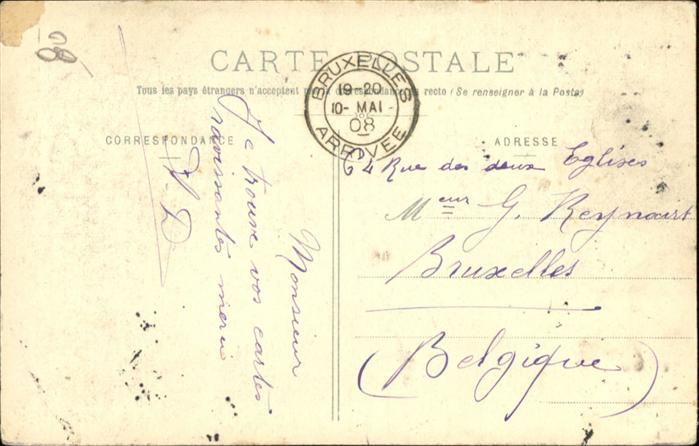 08
CARTE POSTALE
Tous les pays étrangers n'acceptent recto (Se renseigner à la Poste)
CORRESPONDANCE
ADRESSE
BRUXELLES
19-20
10- MAI -
08
ARRIVÉE
Monsieur
Je trouve vos cartes
ravissantes merci
64 Rue des deux Eglises
Meur G. Reynart
Bruxelles
(Belgique)